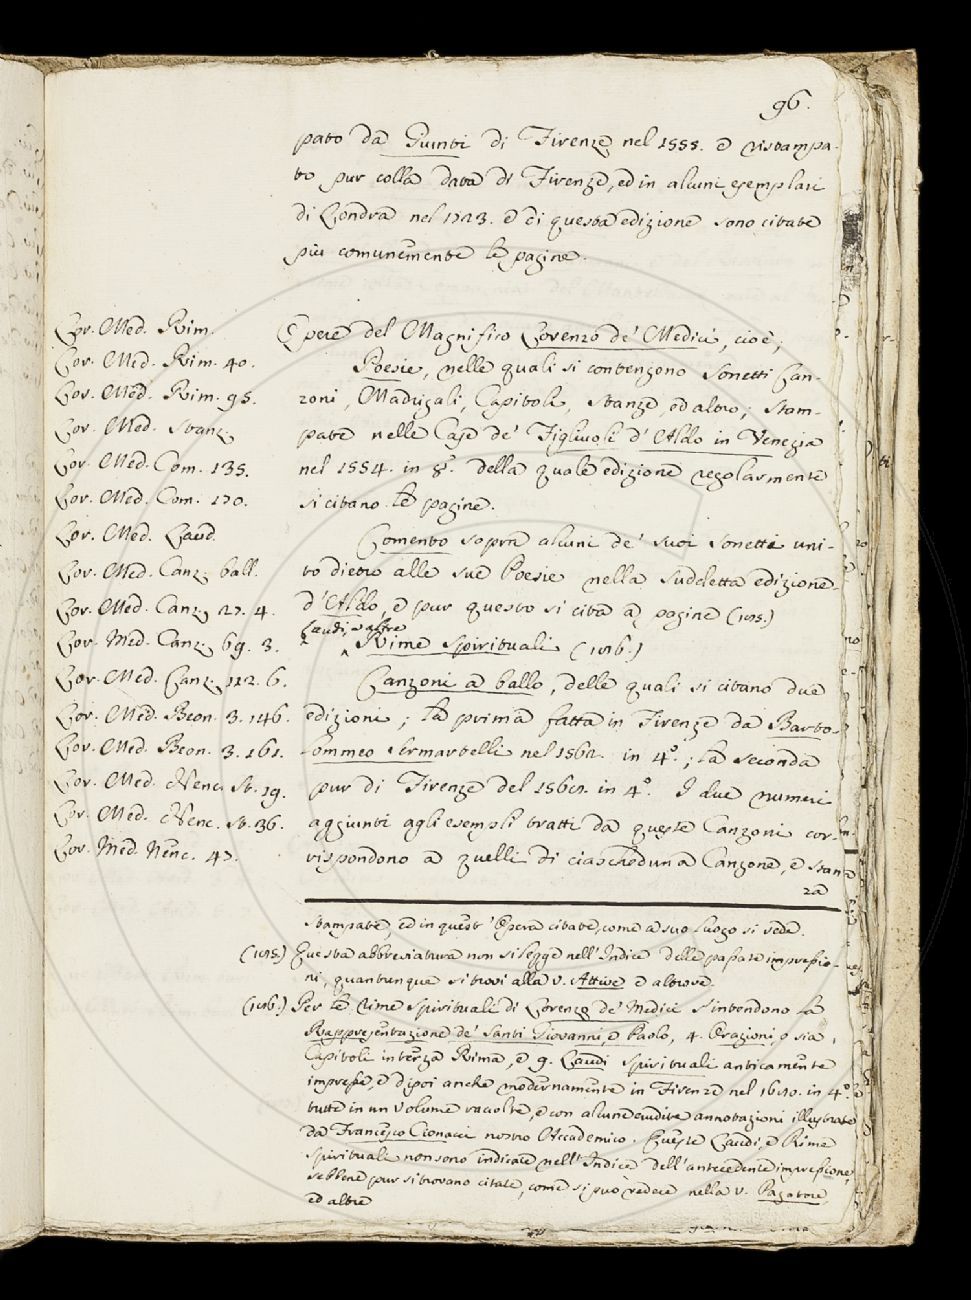 96.
pato da Giunti di Firenze nel 1555. e ristampa-
to pur colla data di Firenze, ed in alcuni esemplari
di Londra nel 1723. e di questa edizione sono citate
più comunemente le pagine.
Lor. Med. Rim.
Lor. Med. Rim. 40.
Lor. Med. Rim. 95.
Lor. Med. Stanz.
Lor. Med. Com. 135.
Lor. Med. Com. 170.
Lor. Med. Laud.
Lor. Med. Canz. ball.
Lor. Med. Canz. 27. 4.
Lor. Med. Canz. 69. 3.
Lor. Med. Canz. 112. 6.
Lor. Med. Beon. 3. 146.
Lor. Med. Beon. 3. 161.
Lor. Med. Nenc. St. 19.
Lor. Med. Nenc. St. 36.
Lor. Med. Nenc. 47.
Opere del Magnifico Lorenzo de' Medici, cioè;
Poesie, nelle quali si contengono Sonetti Can-
zoni, Madrigali, Capitoli, Stanze, ed altro; Stam-
pate nelle Case de' Figliuoli d'Aldo in Venezia
nel 1554. in 8.º della quale edizione regolarmente
si citano le pagine.
Comento sopra alcuni de' suoi Sonetti uni-
to dietro alle sue Poesie nella suddetta edizione
d'Aldo, e pur questo si cita a pagine
Laudi, e altre
Rime Spirituali
Canzoni a ballo, delle quali si citano due
edizioni; la prima fatta in Firenze da Barto-
lommeo Sermartelli nel 1562. in 4.º; la seconda
pur di Firenze del 1568. in 4.º I due numeri
aggiunti agli esempli tratti da queste Canzoni cor-
rispondono a quelli di ciascheduna Canzone, e Stan-
za
Stampate, ed in quest' Opera citate, come a suo luogo si vede.
Questa abbreviatura non si legge nell'Indice delle passate impressio-
ni, quantunque si trovi alla v. Attivo e altrove.
Per le Rime Spirituali di Lorenzo de' Medici s'intendono la
Rappresentazione de' Santi Giovanni, e Paolo, 4. Orazioni, o sia,
Capitoli in terza Rima, e 9. Laudi Spirituali anticamente
impresse, e dipoi anche modernamente in Firenze nel 1680. in 4.º
tutte in un Volume raccolte, e con alcune erudite annotazioni illustrate
da Francesco Cionacci nostro Accademico. Queste Laudi, e Rime
Spirituali non sono indicate nell'Indice dell'antecedente impressione,
sebbene pur si trovano citate, come si può vedere nella v. Pagatore
ed altre